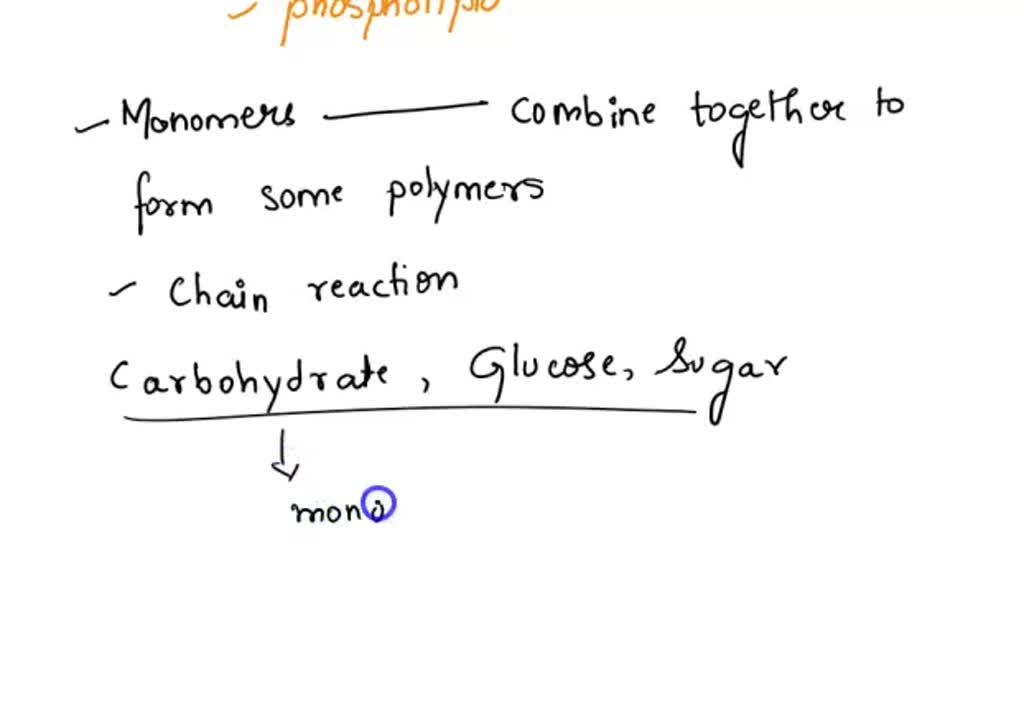 phospholipid
Monomers — Combine together to
form some polymers
Chain reaction
Carbohydrate, Glucose, Sugar
mono